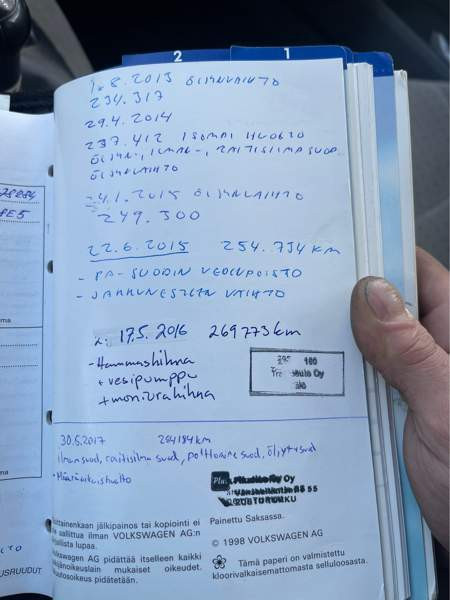 2
1
1.8.2013 ÖLJYNVAIHTO
234.317
29.4.2014
237.412 ISOMPI HUOLTO
ÖLJYN-, ILMAN-, RAITISILMASUOD.
ÖLJYNVAIHTO
4.1.2015 ÖLJYNVAIHTO
249.300
22.6.2015 254.734 KM
- PA-SUODIN VEDENPOISTO
- JÄÄHDNESTEEN VAIHTO
17.5.2016 269773km
- Hammashihna
+ vesipumppu
+ moniurahihna
Oy
30.5.2017 284184km
ilmansuod, raitisilma suod, polttoaine suod, öljytsuod
- Määräaikaishuolto
Plus
Oy
TURKU
ttainenkaan jälkipainos tai kopiointi ei
sallittua ilman VOLKSWAGEN AG:n
lista lupaa.
lkswagen AG pidättää itselleen kaikki
jänoikeuslain mukaiset oikeudet.
utosoikeus pidätetään.
Painettu Saksassa.
© 1998 VOLKSWAGEN AG
Tämä paperi on valmistettu
kloorivalkaisemattomasta selluloosasta.
USRUUDUT